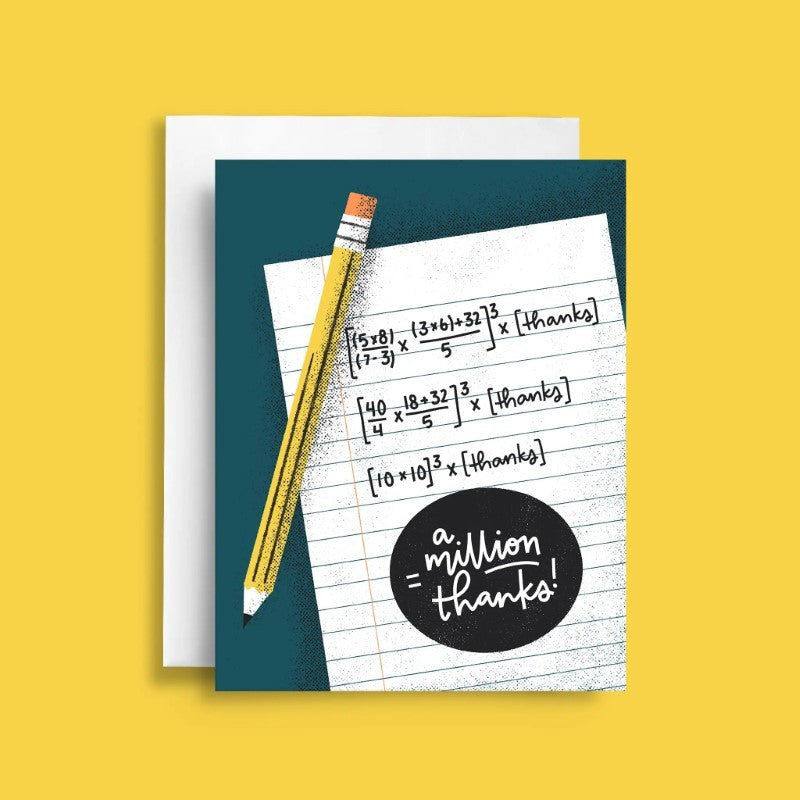 [(5x8)/(7-3) x (3x6)+32/5]³ x [thanks]
[40/4 x 18+32/5]³ x [thanks]
[10x10]³ x [thanks]
= a
million
thanks!